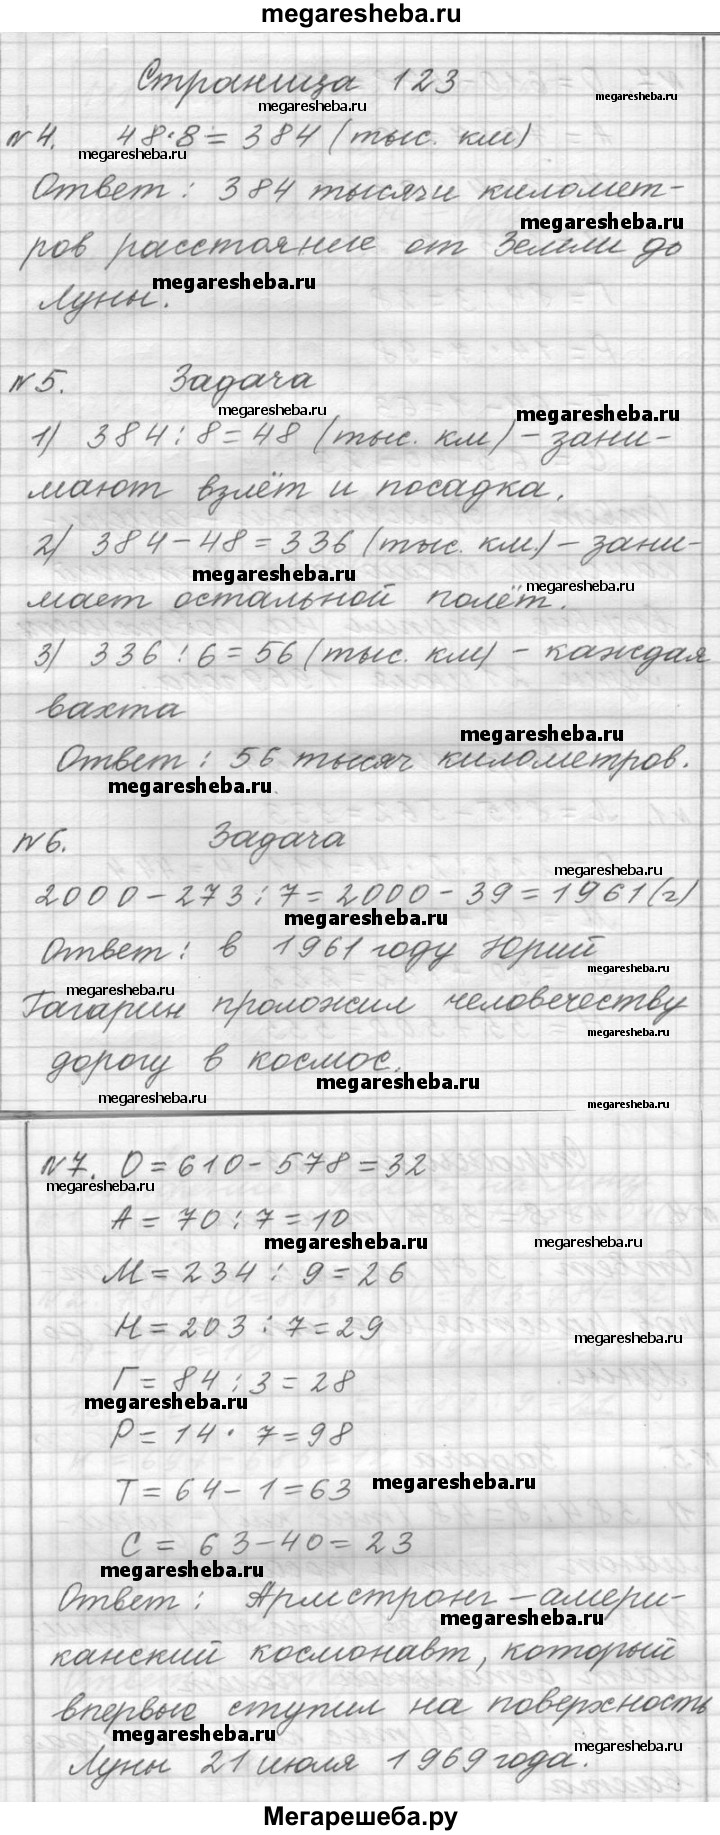 megaresheba.ru
Страница 123
megaresheba.ru
megaresheba.ru
№4. 48·8=384 (тыс. км)
megaresheba.ru
Ответ: 384 тысячи километ-
megaresheba.ru
ров расстояние от Земли до
megaresheba.ru
Луны.
№5. Задача
megaresheba.ru
megaresheba.ru
1) 384:8=48 (тыс. км) - зани-
мают взлёт и посадка.
2) 384-48=336 (тыс. км.) - зани-
megaresheba.ru
megaresheba.ru
мает остальной полёт.
3) 336:6=56 (тыс. км) - каждая
вахта
megaresheba.ru
Ответ: 56 тысяч километров.
megaresheba.ru
№6. Задача
megaresheba.ru
2000-273:7=2000-39=1961(г)
megaresheba.ru
Ответ: в 1961 году Юрий
megaresheba.ru
megaresheba.ru
Гагарин проложил человечеству
megaresheba.ru
дорогу в космос.
megaresheba.ru
megaresheba.ru
megaresheba.ru
№7. О=610-578=32
megaresheba.ru
А=70:7=10
megaresheba.ru
megaresheba.ru
М=234:9=26
Н=203:7=29
megaresheba.ru
Г=84:3=28
megaresheba.ru
Р=14·7=98
Т=64-1=63
megaresheba.ru
С=63-40=23
megaresheba.ru
Ответ: Армстронг - амери-
megaresheba.ru
канский космонавт, который
впервые ступил на поверхность
megaresheba.ru
megaresheba.ru
Луны 21 июля 1969 года.
Мегарешеба.ру